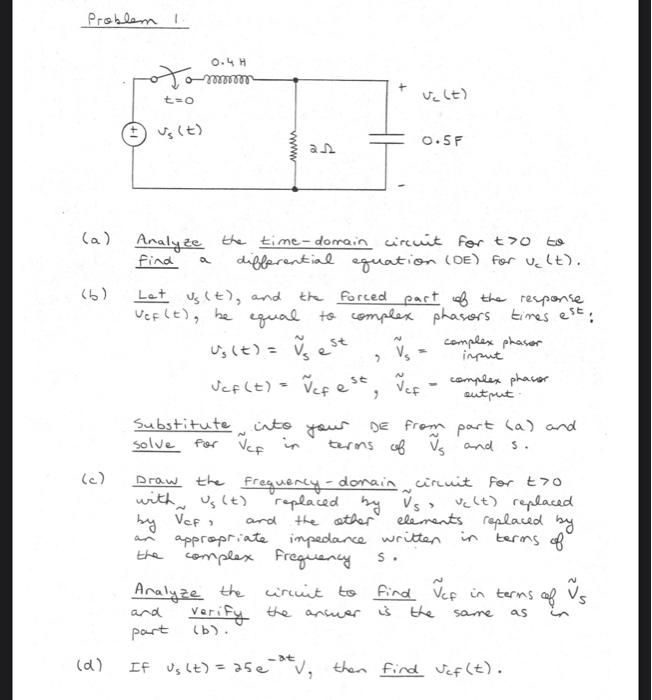 Problem 1.
0.4 H
t=0
+
v_c(t)
± v_s(t)
2Ω
0.5F
-
(a) Analyze the time-domain circuit for t>0 to
find a differential equation (DE) for v_c(t).
(b) Let v_s(t), and the forced part of the response
v_cf(t), be equal to complex phasors times e^{st}:
v_s(t) = Ṽ_s e^{st} , Ṽ_s = complex phasor
input
v_cf(t) = Ṽ_cf e^{st} , Ṽ_cf = complex phasor
output.
Substitute into your DE from part (a) and
solve for Ṽ_cf in terms of Ṽ_s and s.
(c) Draw the frequency-domain circuit for t>0
with v_s(t) replaced by Ṽ_s, v_c(t) replaced
by Ṽ_cf, and the other elements replaced by
an appropriate impedance written in terms of
the complex frequency s.
Analyze the circuit to find Ṽ_cf in terms of Ṽ_s
and verify the answer is the same as in
part (b).
(d) If v_s(t) = 25e^{-2t} V, then find v_cf(t).